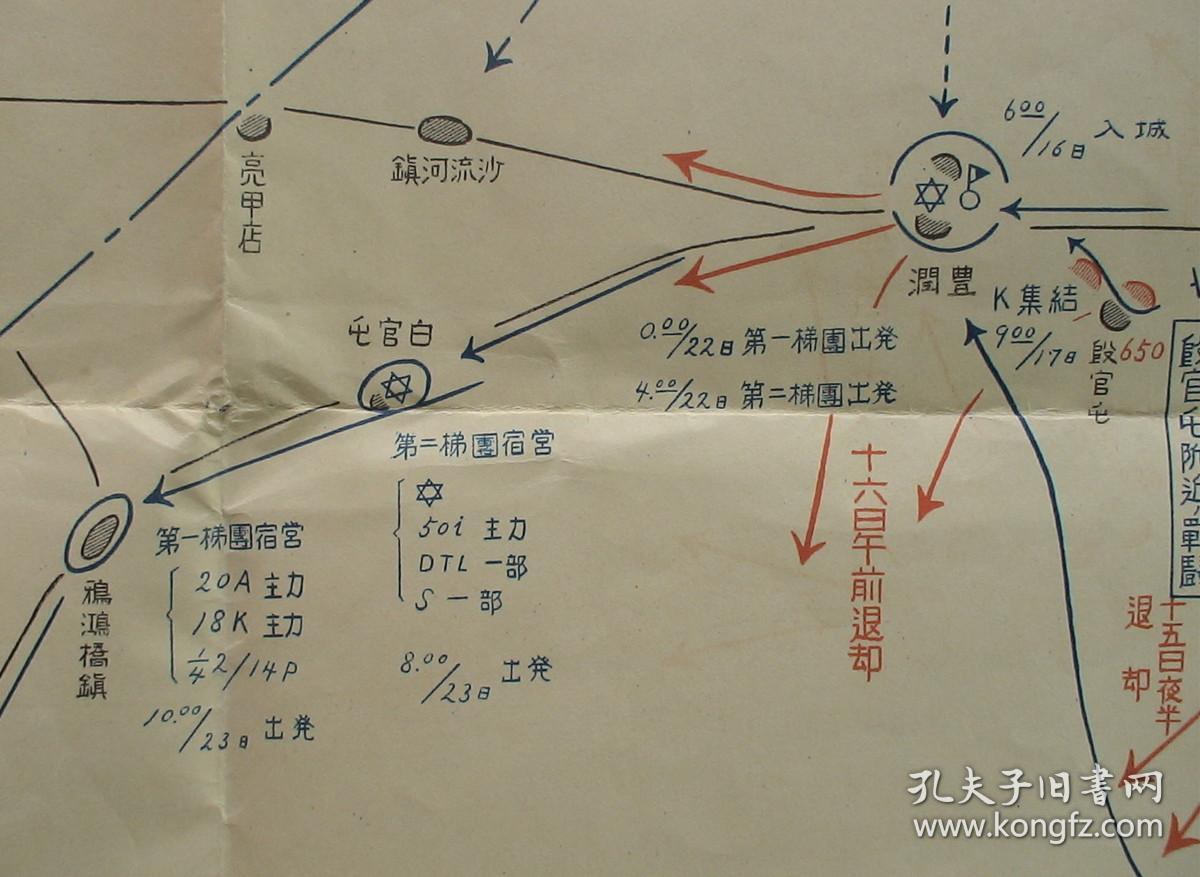 6.00/16日 入城
亮甲店
鎮河流沙
潤豊
K集結
9.00/17日
殷官屯
650
屯官白
0.00/22日 第一梯團出発
4.00/22日 第二梯團出発
殷官屯附近ノ戰鬪
第二梯團宿営
50i 主力
DTL 一部
S 一部
8.00/23日 出発
十六日午前退却
第一梯團宿営
20A 主力
18K 主力
1/4 2/14P
10.00/23日 出発
鴉鴻橋鎮
十五日夜半
退却
孔夫子旧书网
www.kongfz.com